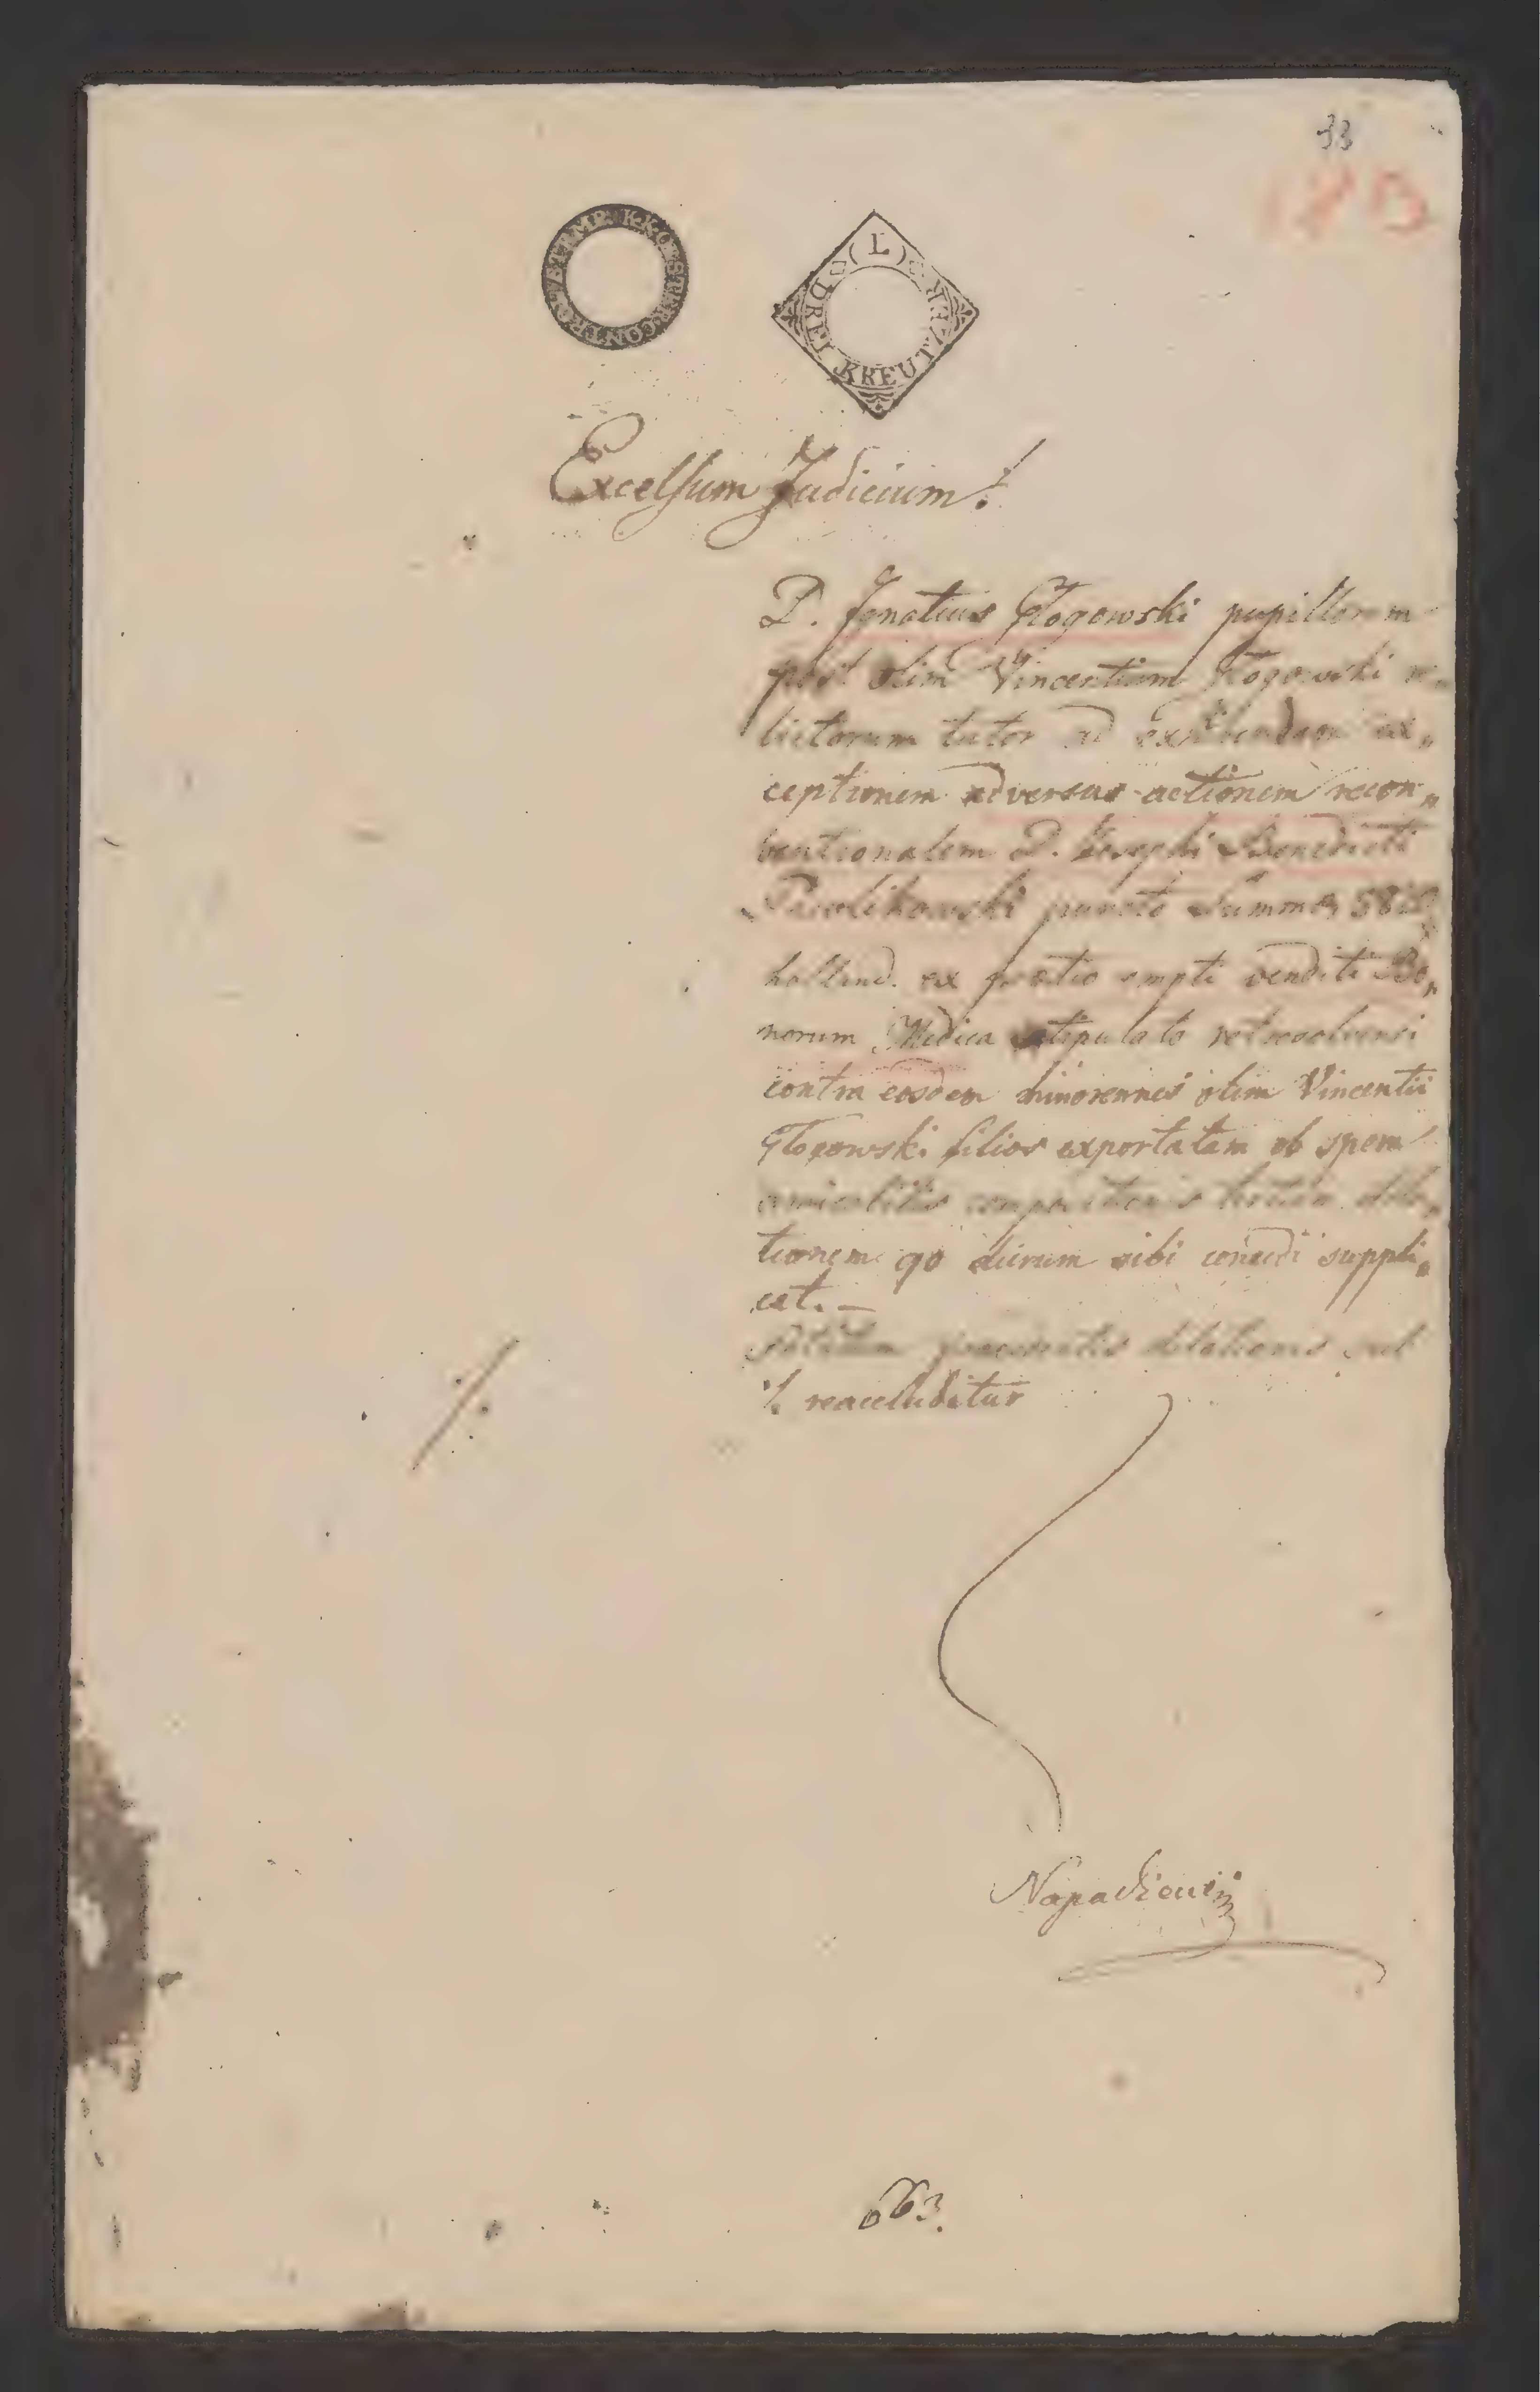 33
180
K.K. OESTER. CONTROLZETTMP.
(L)
DREI KREUTZER
Excelsum Judicium!
D. Ignatius Głogowski pupillorum
post olim Vincentium Głogowski re„
lictorum tutor ad exhibendam ex„
ceptionem adversus actionem recon„
ventionalem D. Josephi Benedicti
Pawlikowski puncto Summae 58
holland. ex pretio empti venditi Bo„
norum Medica stipulato
contra eosdem minorennes olim Vincentii
Głogowski filios exportatam ob spem
amicabilis compositionis tertiam dila„
tionem 90 dierum sibi concedi suppli„
cat. —
praecedentis dilationis sub
⁒ reaccluditur
⁒
663.